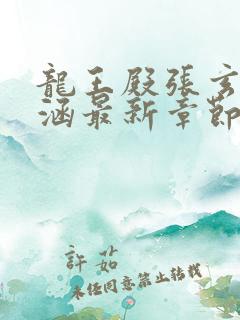 龍王殿張玄
涵最新章節
許茹
未任同意禁止转载